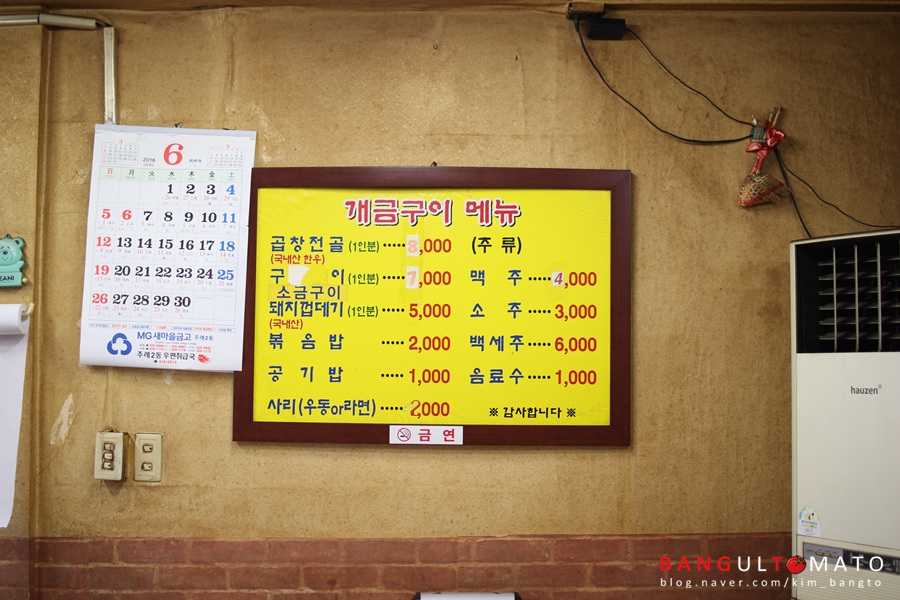 2016 6
日 月 火 水 木 金 土
1 2 3 4
5 6 7 8 9 10 11
12 13 14 15 16 17 18
19 20 21 22 23 24 25
26 27 28 29 30
MG새마을금고 주례2동
주례2동 우편취급국
개금구이 메뉴
곱창전골 (1인분) ····· 8,000 (주 류)
(국내산 한우)
구 이 (1인분) ····· 7,000 맥 주 ····· 4,000
소금구이
돼지껍데기 (1인분) ····· 5,000 소 주 ····· 3,000
(국내산)
볶음밥 ····· 2,000 백세주 ····· 6,000
공기밥 ····· 1,000 음료수 ····· 1,000
사리(우동or라면) ····· 2,000 ※ 감사합니다 ※
금 연
hauzen
BANGULTOMATO
blog.naver.com/kim_bangto